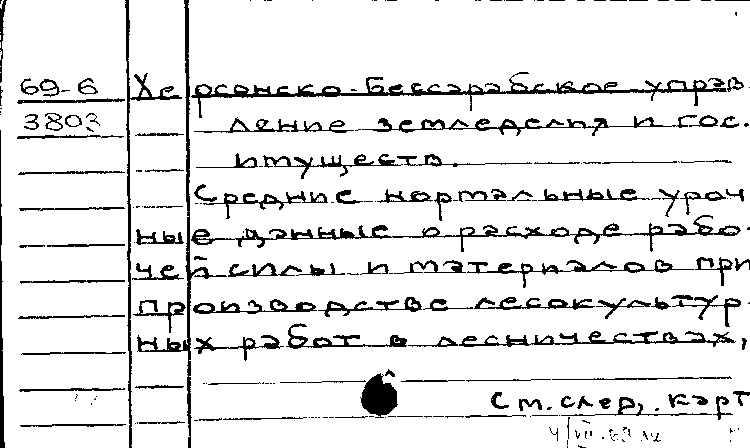 69-6 Херсонско-Бессарабское управ
3803 ление земледелия и гос.
имуществ.
Средние нормальные уроч
ные данные о расходе рабо-
чей силы и материалов при
производстве лесокультур-
ных работ в лесничествах,
См. след. карт